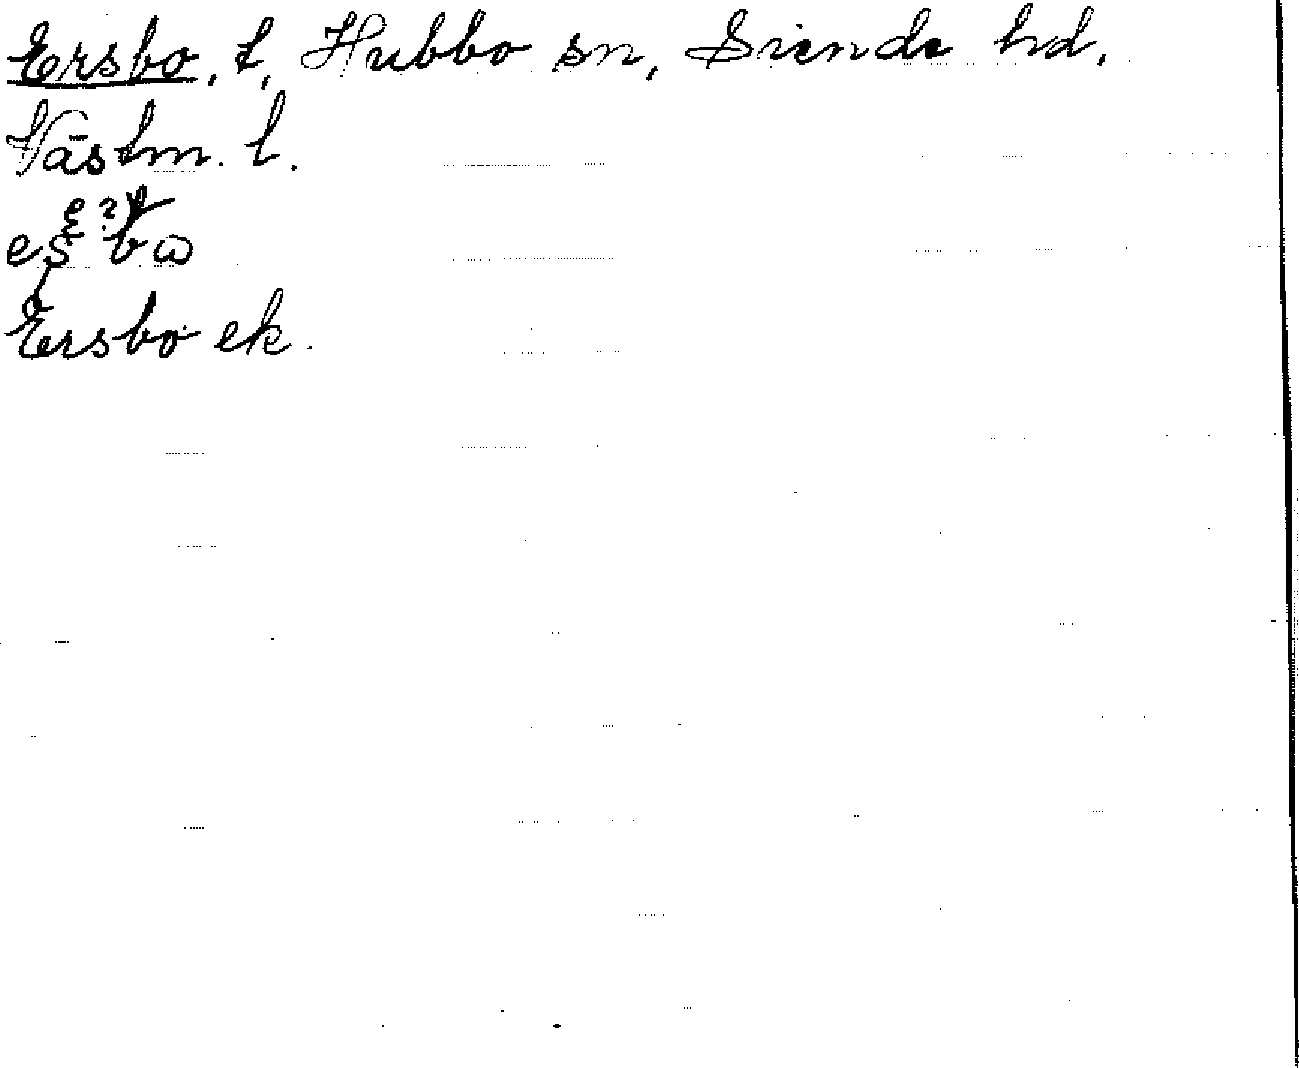 Ersbo, t, Hubbo sn, Siende hd,
Västm. l.
Ersbo ek.